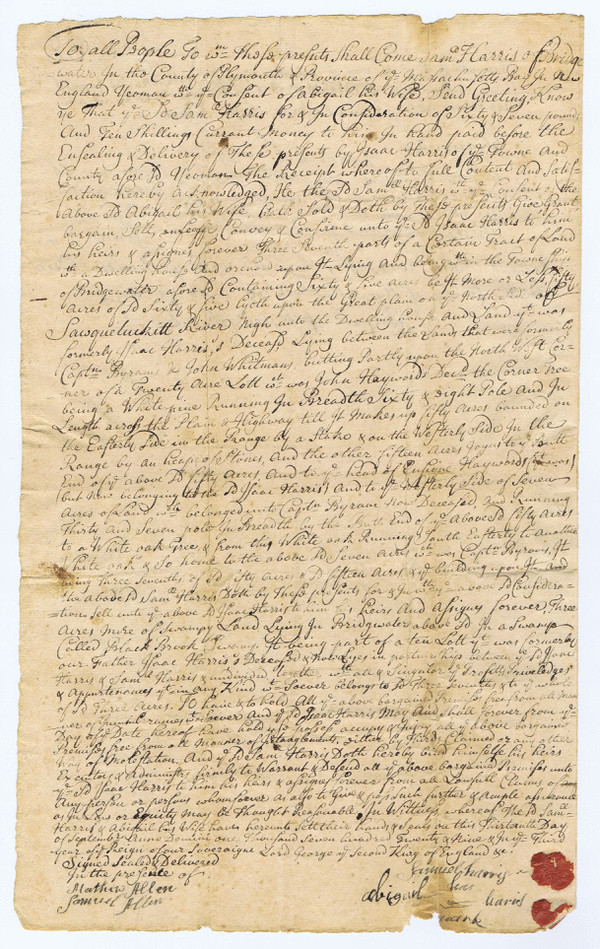 To all People To wm. These presents Shall Come Saml Harris of Bridge
water In the County of Plymouth & Province of ye Massachusetts Bay In New
England Yeoman wth ye Consent of Abigail his Wife, Send Greeting, Know
ye That ye Sd Saml Harris for & In Consideration of Sixty & Seven pounds
And Ten Shillings Currant Money to him In hand paid before the
Ensealing & Delivery of These presents by Isaac Harris of ye Towne And
County afore Sd Yeoman The Receipt whereof to full Content And Satis-
faction hereby acknowledged, He the Sd Samll Harris wth ye Consent of the
Above Sd Abigail his Wife Hath Sold & Doth by These presents Give Grant,
bargain, Sell, Convey & Confirme unto ye Sd Isaac Harris to him
his heirs & assignes forever Three Seventh parts of a Certain Tract of Land
wth a Dwelling house And orchard upon It Lying And being in the Towne Ship
of Bridgewater afore Sd Containing Sixty & five acres be It More or Less fifty
Acres of Sd Sixty & five Lyeth upon the Great plain on ye North Side of
River Nigh unto the Dwelling house And Land yt was
formerly Isaac Harris's Deceasd Lying between the Lands that were formerly
Captn Byrams & John Whitmans butting Partly upon the North West Cor-
ner of a Twenty Acre Lott wch was John Haywards Decd the Corner tree
being a White pine Running In Breadth Sixty & Eight Pole And In
Length across the Plain & Highway till It Makes up fifty Acres bounded on
the Easterly Side in the Range by a Stake & on the Westerly Side In the
Range by an heap of Stones, And the other fifteen Acres Joyns to ye South
End of ye above Sd fifty Acres And to ye head of Ensigne Haywards (that was)
(but Now belonging to the Sd Isaac Harris) And to ye Westerly Side of Seven
Acres of Land wch belonged unto Captn Byram Now Deceased, And Running
Thirty And Seven pole In Breadth by the South End of ye Above Sd fifty Acres
to a White oak Tree & from this White oak Running South Easterly to Another
White oak & So home to the above Sd Seven Acres wch was Captn Byrams, It
being Three Sevenths of Sd fifty Acres & Sd fifteen Acres & ye building upon It And
the Above Sd Saml Harris Doth by These presents for & In ye above Sd Considera-
-tion Sell unto ye above Sd Isaac Harris to him his Heirs And Assigns forever Three
Acres More of Swampy Land Lying In Bridgewater above Sd In a Swamp
Called Black Brook Swamp It being part of a ten Lott yt was formerly
our Father Isaac Harris's Deceasd & Now Lyes in partnership between ye Sd Isaac
Harris & Samll Harris & undivided Together wth all & Singular ye Profitts Priveledges
& Appurtenances yt in any Kind Soever belongs to Sd Three Sevenths & to ye whole
of Sd Three Acres. To have & to hold All ye above bargained Premises free from all Man-
ner of Incumbrances And ye Sd Isaac Harris May And Shall forever from ye
Day of ye Date hereof have hold use possess occupy & Injoy ye above bargained
Premises free from all Manner of Intanglements Claimed or any other
Way of Molestation. And ye Sd Saml Harris Doth hereby bind himself his heirs
Executors & Administrs firmly to Warrant & Defend all ye above bargained Premises unto
ye Sd Isaac Harris to him his heirs & assignes forever from all Lawfull Claims of
Any person or persons whomsoever As also to Give & pass Such further & ample assurance
as In Law or equity may be Thought Reasonable. In Witness whereof The Sd Samll
Harris & Abigail his Wife have hereunto Sett their hands & Seals on this Day
of September Anno Domini One Thousand Seven hundred Twenty & Nine & In ye Third
Year of ye Reign of our Soveraigne Lord George ye Second King of England &c.
Signed Sealed & Delivered
In the presence of
Mathew Allen
Samuel Allen
Samuel Harris
Abigail her Haris
mark